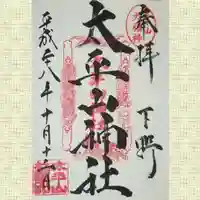 奉拝
下野
太平山神社
平成廿八年十月十三日